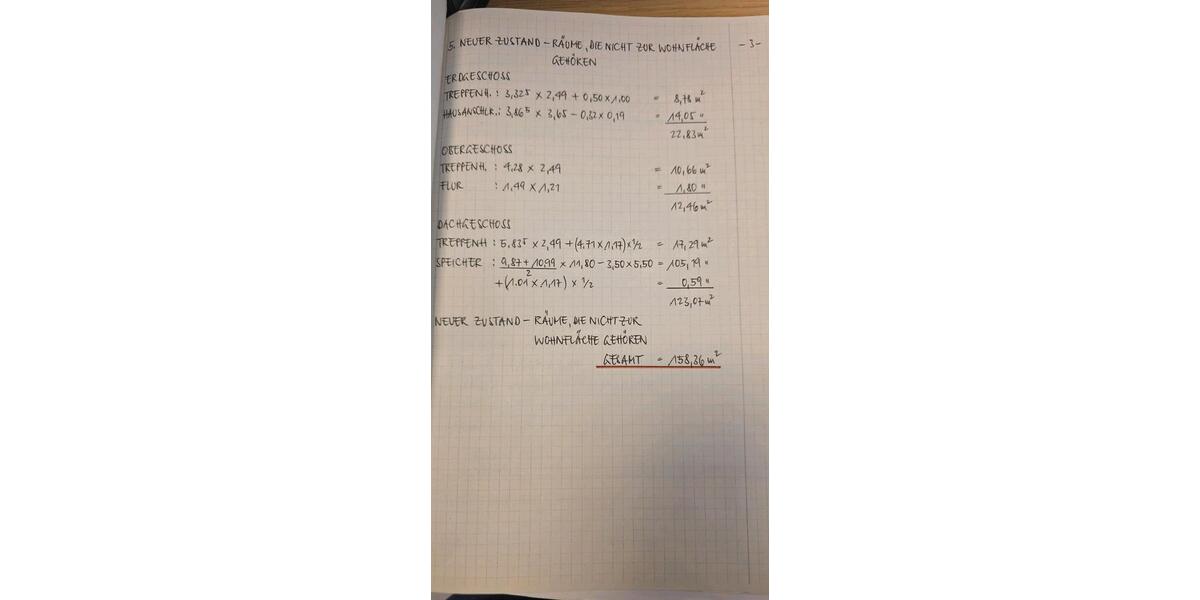 5. NEUER ZUSTAND – RÄUME, DIE NICHT ZUR WOHNFLÄCHE – 3 –
GEHÖREN
ERDGESCHOSS
TREPPENH. : 3,32⁵ × 2,49 + 0,50 × 1,00 = 8,78 m²
HAUSANSCHLR. : 3,86⁵ × 3,65 – 0,32 × 0,19 = 14,05 "
22,83 m²
OBERGESCHOSS
TREPPENH. : 4.28 × 2,49 = 10,66 m²
FLUR : 1,49 × 1,21 = 1,80 "
12,46 m²
DACHGESCHOSS
TREPPENH : 5.83⁵ × 2,49 + (4.71 × 1,17) × 1/2 = 17,29 m²
SPEICHER : (9,87 + 10,99)/2 × 11,80 – 3,50 × 5,50 = 105,19 "
+ (1.01 × 1,17) × 1/2 = 0,59 "
123,07 m²
NEUER ZUSTAND – RÄUME, DIE NICHT ZUR
WOHNFLÄCHE GEHÖREN
GESAMT = 158,36 m²